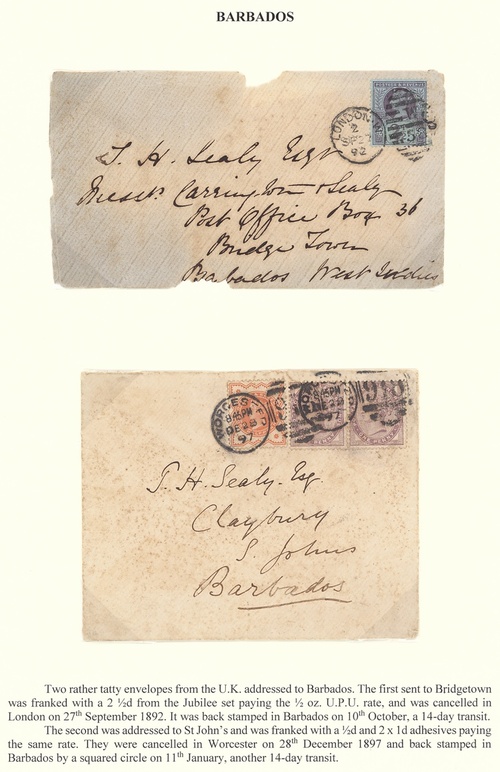 BARBADOS
LONDON
2
92
T. H. Sealy Esqr
Messrs Carrington & Sealy
Post Office Box 36
Bridge Town
Barbados West Indies
WORCESTER
8.45PM
DE 28
97
918
T. H. Sealy. Esq.
Claybury
S. Johns
Barbados
Two rather tatty envelopes from the U.K. addressed to Barbados. The first sent to Bridgetown
was franked with a 2 ½d from the Jubilee set paying the ½ oz. U.P.U. rate, and was cancelled in
London on 27th September 1892. It was back stamped in Barbados on 10th October, a 14-day transit.
The second was addressed to St John's and was franked with a ½d and 2 x 1d adhesives paying
the same rate. They were cancelled in Worcester on 28th December 1897 and back stamped in
Barbados by a squared circle on 11th January, another 14-day transit.